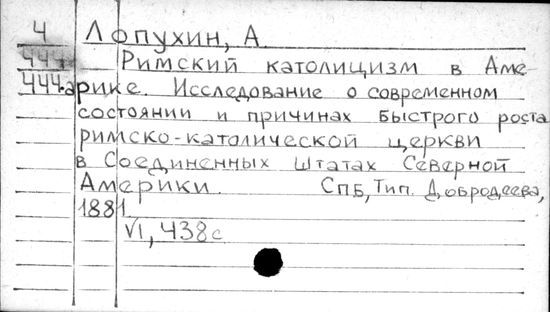 4 Лопухин, А.
444 Римский католицизм в Аме-
444.арике. Исследование о современном
состоянии и причинах быстрого роста
римско-католической церкви
в Соединенных Штатах Северной
Америки. СПб, Тип. Добродеева,
1881.
VI, 438 с